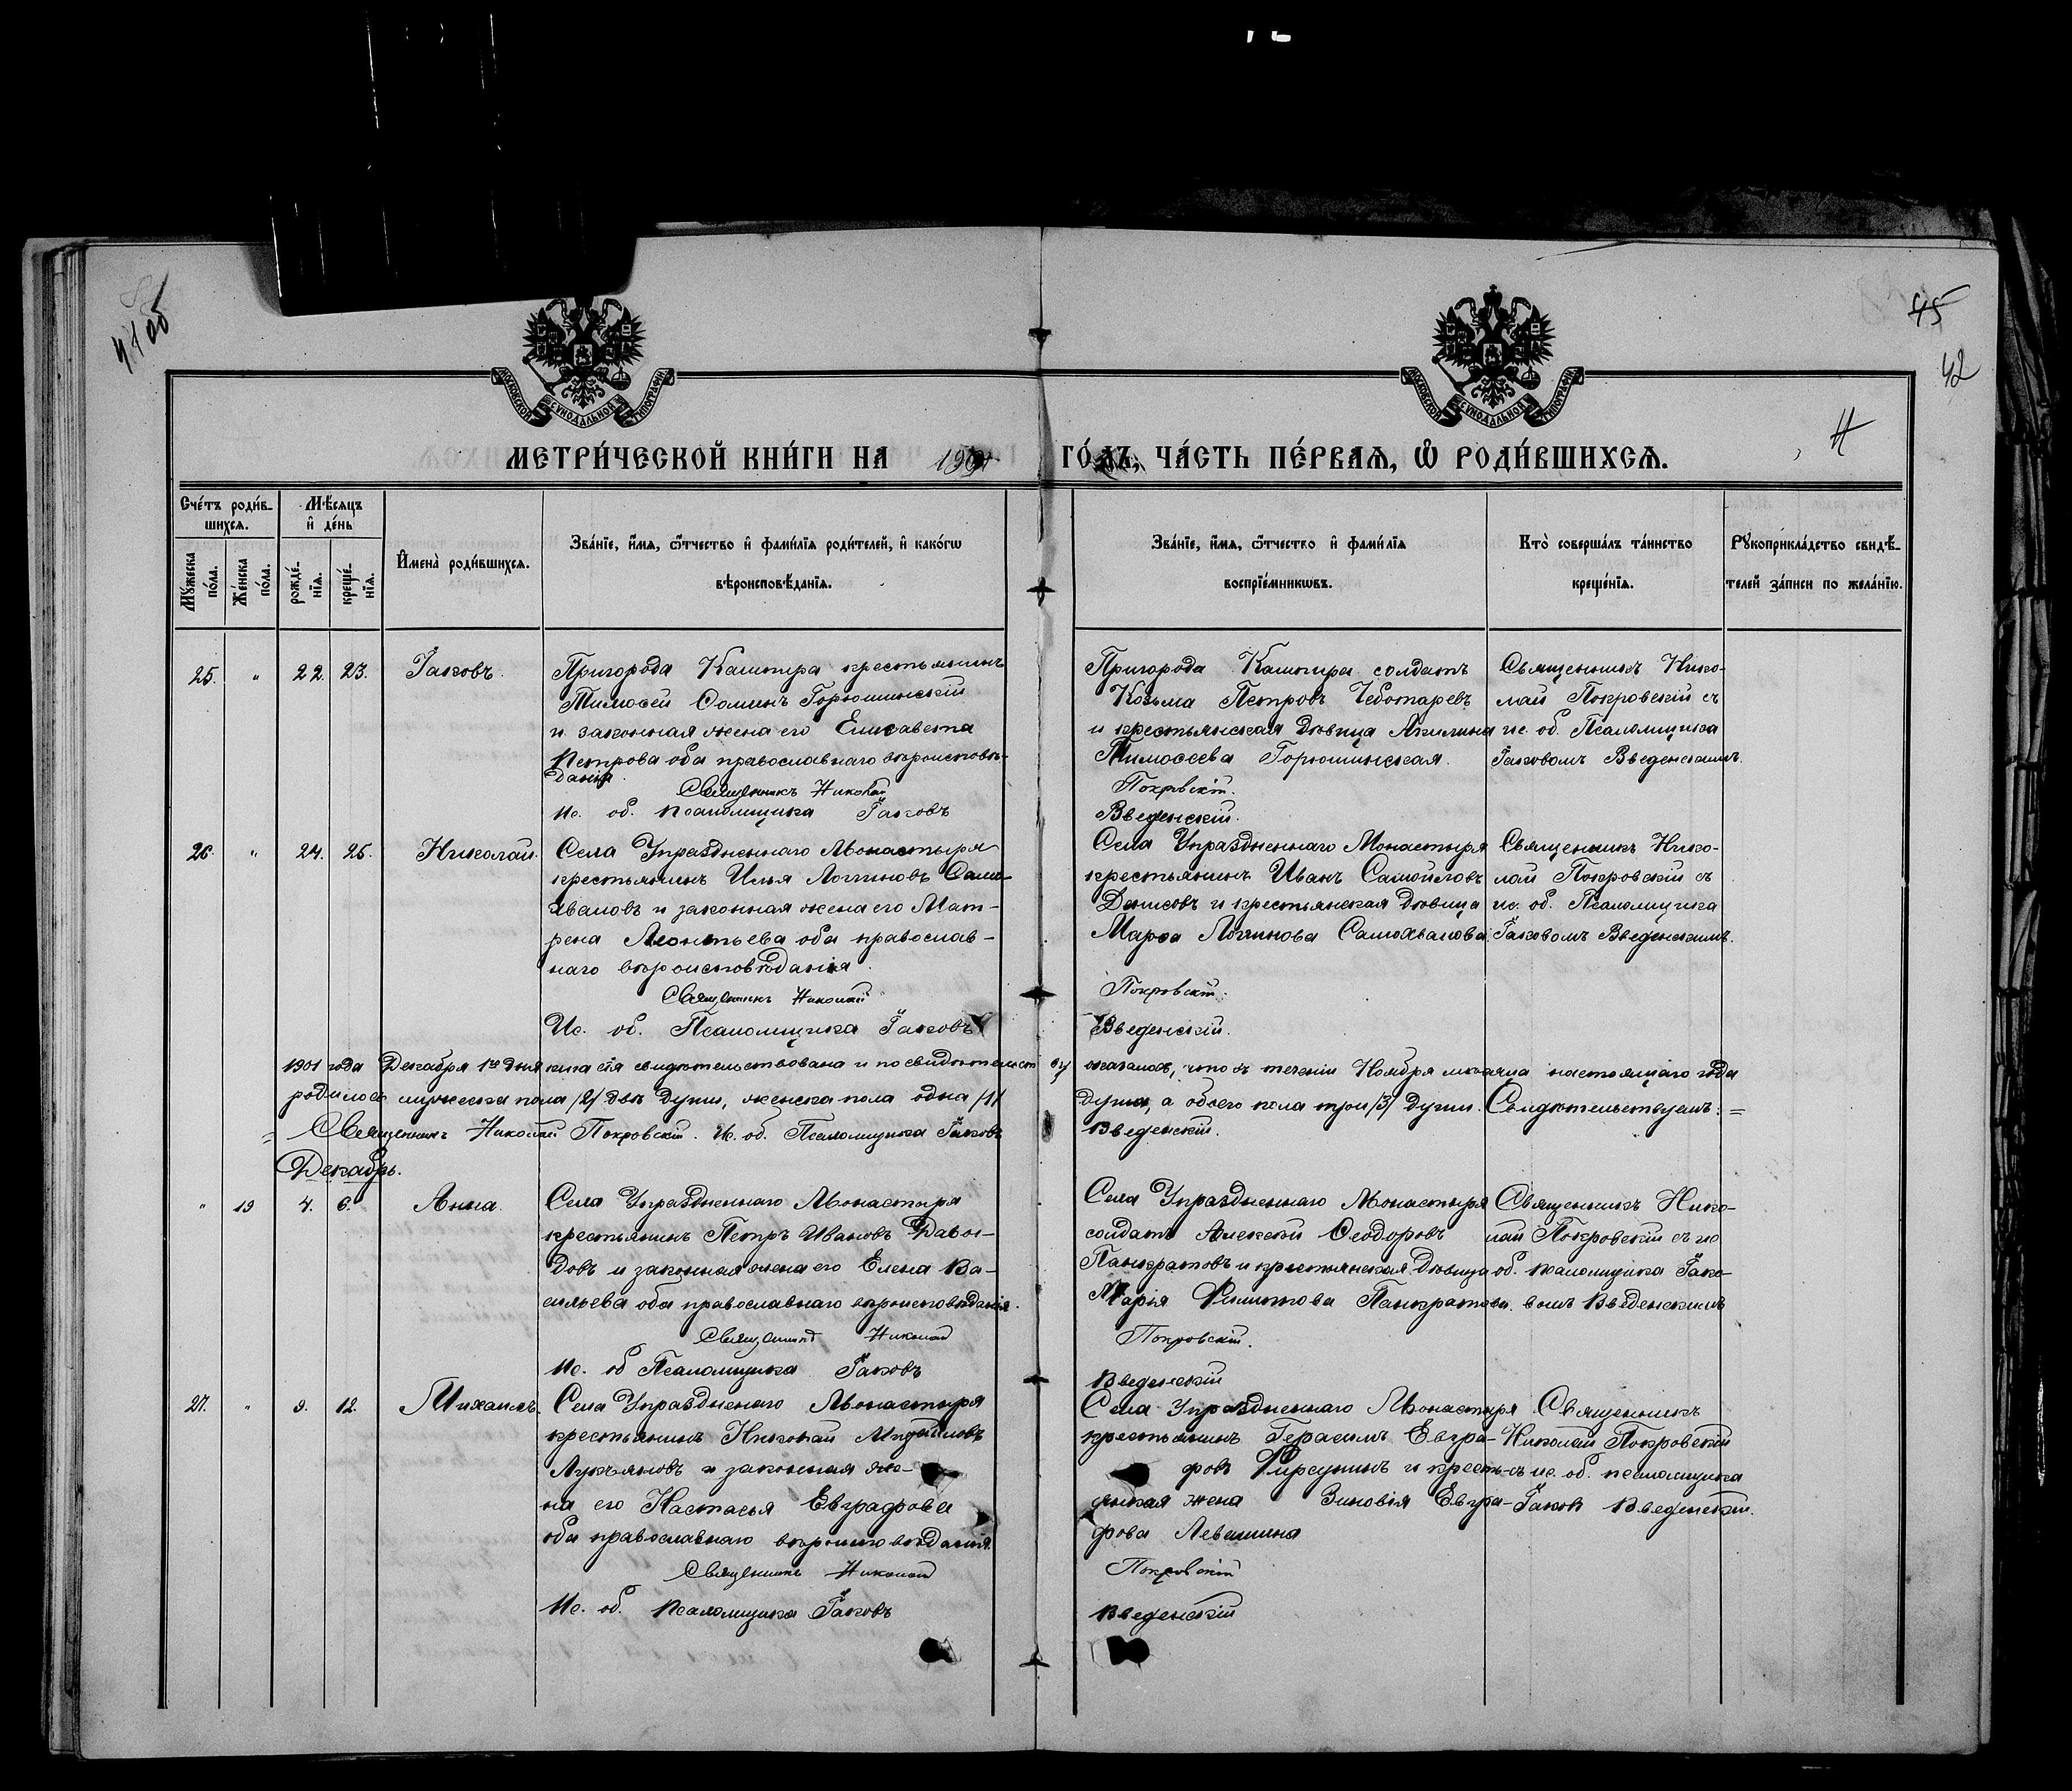 41об
45
42
МОСКОВСКОЙ СѴНОДАЛЬНОЙ ТИПОГРАФІИ
МОСКОВСКОЙ СѴНОДАЛЬНОЙ ТИПОГРАФІИ
МЕТРИ́ЧЕСКОЙ КНИ́ГИ НА 1901 ГО́ДЪ, ЧА́СТЬ ПЕ́РВАЯ, Ѽ РОДИ́ВШИХСѦ.
Сче́тъ роди́в-
шихсѧ.
Мꙋ́жеска
по́ла.
Же́нска
по́ла.
Мѣ́сяцъ
и҆ де́нь
рожде́-
нїѧ.
креще́-
нїѧ.
И҆мена̀ роди́вшихсѧ.
Зва́нїе, и҆́мѧ, ѻ҆́тчество и҆ фами́лїѧ роди́телей, и҆ како́гѡ
вѣроисповѣ́данїѧ.
Зва́нїе, и҆́мѧ, ѻ҆́тчество и҆ фами́лїѧ
воспрїе́мникѡвъ.
Кто̀ соверша́лъ та́инство
креще́нїѧ.
Рꙋкоприкла́дство свидѣ́-
телей за́писи по жела́нїю.
25. " 22. 23. Іаковъ.
Пригорода Кашпира крестьянинъ
Тимоѳей Ѳоминъ Горюшинскій
и законная жена его Елисавета
Петрова оба православнаго вѣроисповѣ-
данія.
Священникъ Николай
Ис. об. Псаломщика Іаковъ
Пригорода Кашпира солдатъ
Козьма Петровъ Чеботаревъ
и крестьянская дѣвица Акилина
Тимоѳеева Горюшинская.
Покровскій.
Введенскій.
Священникъ Нико-
лай Покровскій съ
ис. об. Псаломщика
Іаковомъ Введенскимъ.
26. " 24. 25. Николай.
Села Упраздненнаго Монастыря
крестьянинъ Илья Логгиновъ Само-
хваловъ и законная жена его Мат-
рена Леонтьева оба православ-
наго вѣроисповѣданія.
Священникъ Николай
Ис. об. Псаломщика Іаковъ
Села Упраздненнаго Монастыря
крестьянинъ Иванъ Самойловъ
Денисовъ и крестьянская дѣвица
Марѳа Логгинова Самохвалова.
Покровскій.
Введенскій.
Священникъ Нико-
лай Покровскій съ
ис. об. Псаломщика
Іаковомъ Введенскимъ.
1901 года Декабря 1го дня книга сія свидѣтельствована и по свидѣтельству оказалось, что въ теченіи Ноября мѣсяца настоящаго года
родилось мужеска пола /2/ двѣ души, женска пола одна /1/ душа, а обоего пола три /3/ души. Свидѣтельствуемъ: =
= Священникъ Николай Покровскій. Ис. об. Псаломщика Іаковъ Введенскій.
Декабрь.
" 19 4. 6. Анна.
Села Упраздненнаго Монастыря
крестьянинъ Петръ Ивановъ Давы-
довъ и законная жена его Елена Ва-
сильева оба православнаго вѣроисповѣданія.
Священникъ Николай
Ис. об Псаломщика Іаковъ
Села Упраздненнаго Монастыря
солдатъ Алексѣй Ѳеодоровъ
Панкратовъ и крестьянская дѣвица
Марія Филиппова Панкратова.
Покровскій.
Введенскій
Священникъ Нико-
лай Покровскій съ ис
об. псаломщика Іако-
вомъ Введенскимъ
27. " 9. 12. Михаилъ.
Села Упраздненнаго Монастыря
крестьянинъ Николай
Лукьяновъ и законная же-
на его Настасья Евграфова
оба православнаго вѣроисповѣданія.
Священникъ Николай
Ис. об. Псаломщика Іаковъ
Села Упраздненнаго Монастыря
крестьянинъ Герасимъ Евгра-
фовъ и кресть-
янская жена Зиновія Евгра-
фова Левашина
Покровскій
Введенскій
Священникъ
Николай Покровскій
съ ис. об. псаломщика
Іаковъ Введенскій.